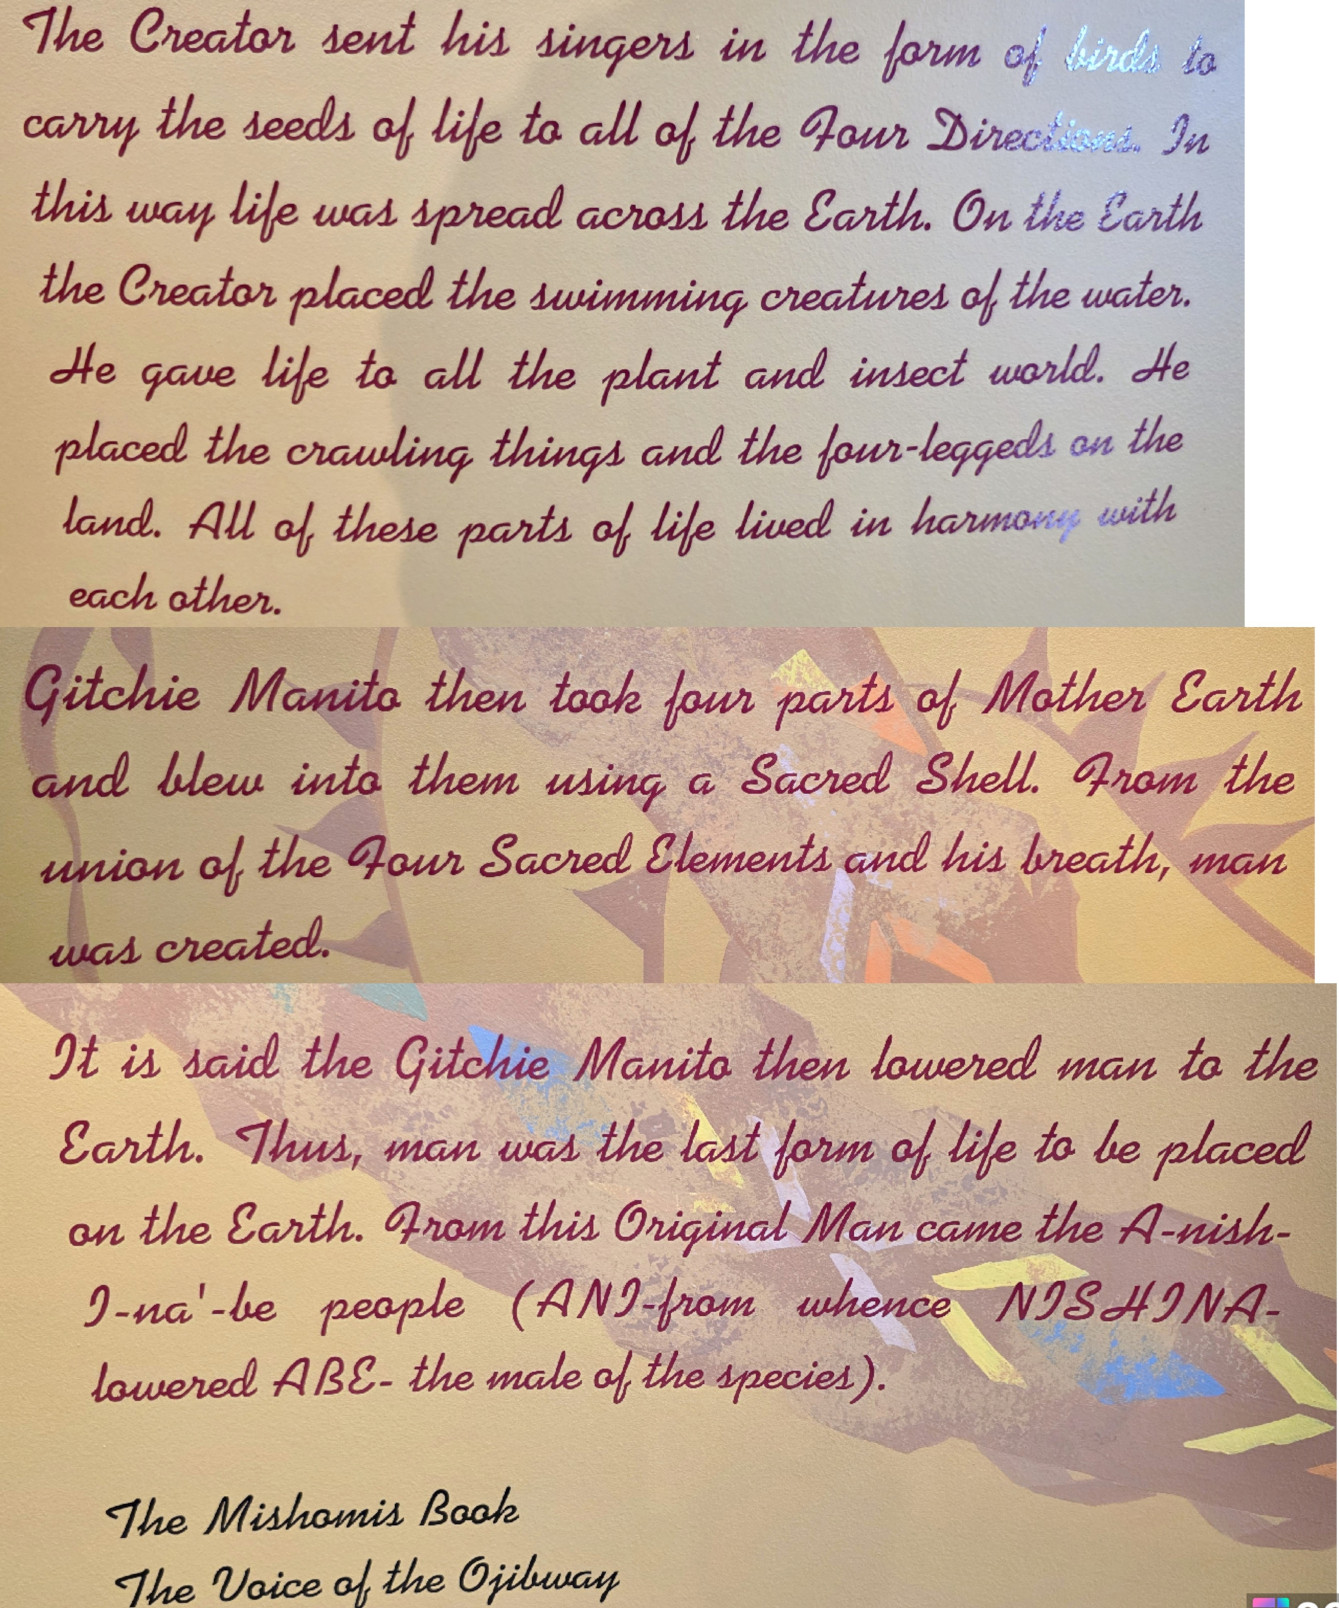 The Creator sent his singers in the form of birds to
carry the seeds of life to all of the Four Directions. In
this way life was spread across the Earth. On the Earth
the Creator placed the swimming creatures of the water.
He gave life to all the plant and insect world. He
placed the crawling things and the four-leggeds on the
land. All of these parts of life lived in harmony with
each other.
Gitchie Manito then took four parts of Mother Earth
and blew into them using a Sacred Shell. From the
union of the Four Sacred Elements and his breath, man
was created.
It is said the Gitchie Manito then lowered man to the
Earth. Thus, man was the last form of life to be placed
on the Earth. From this Original Man came the A-nish-
I-na'-be people (ANI-from whence NISHINA-
lowered ABE- the male of the species).
The Mishomis Book
The Voice of the Ojibway